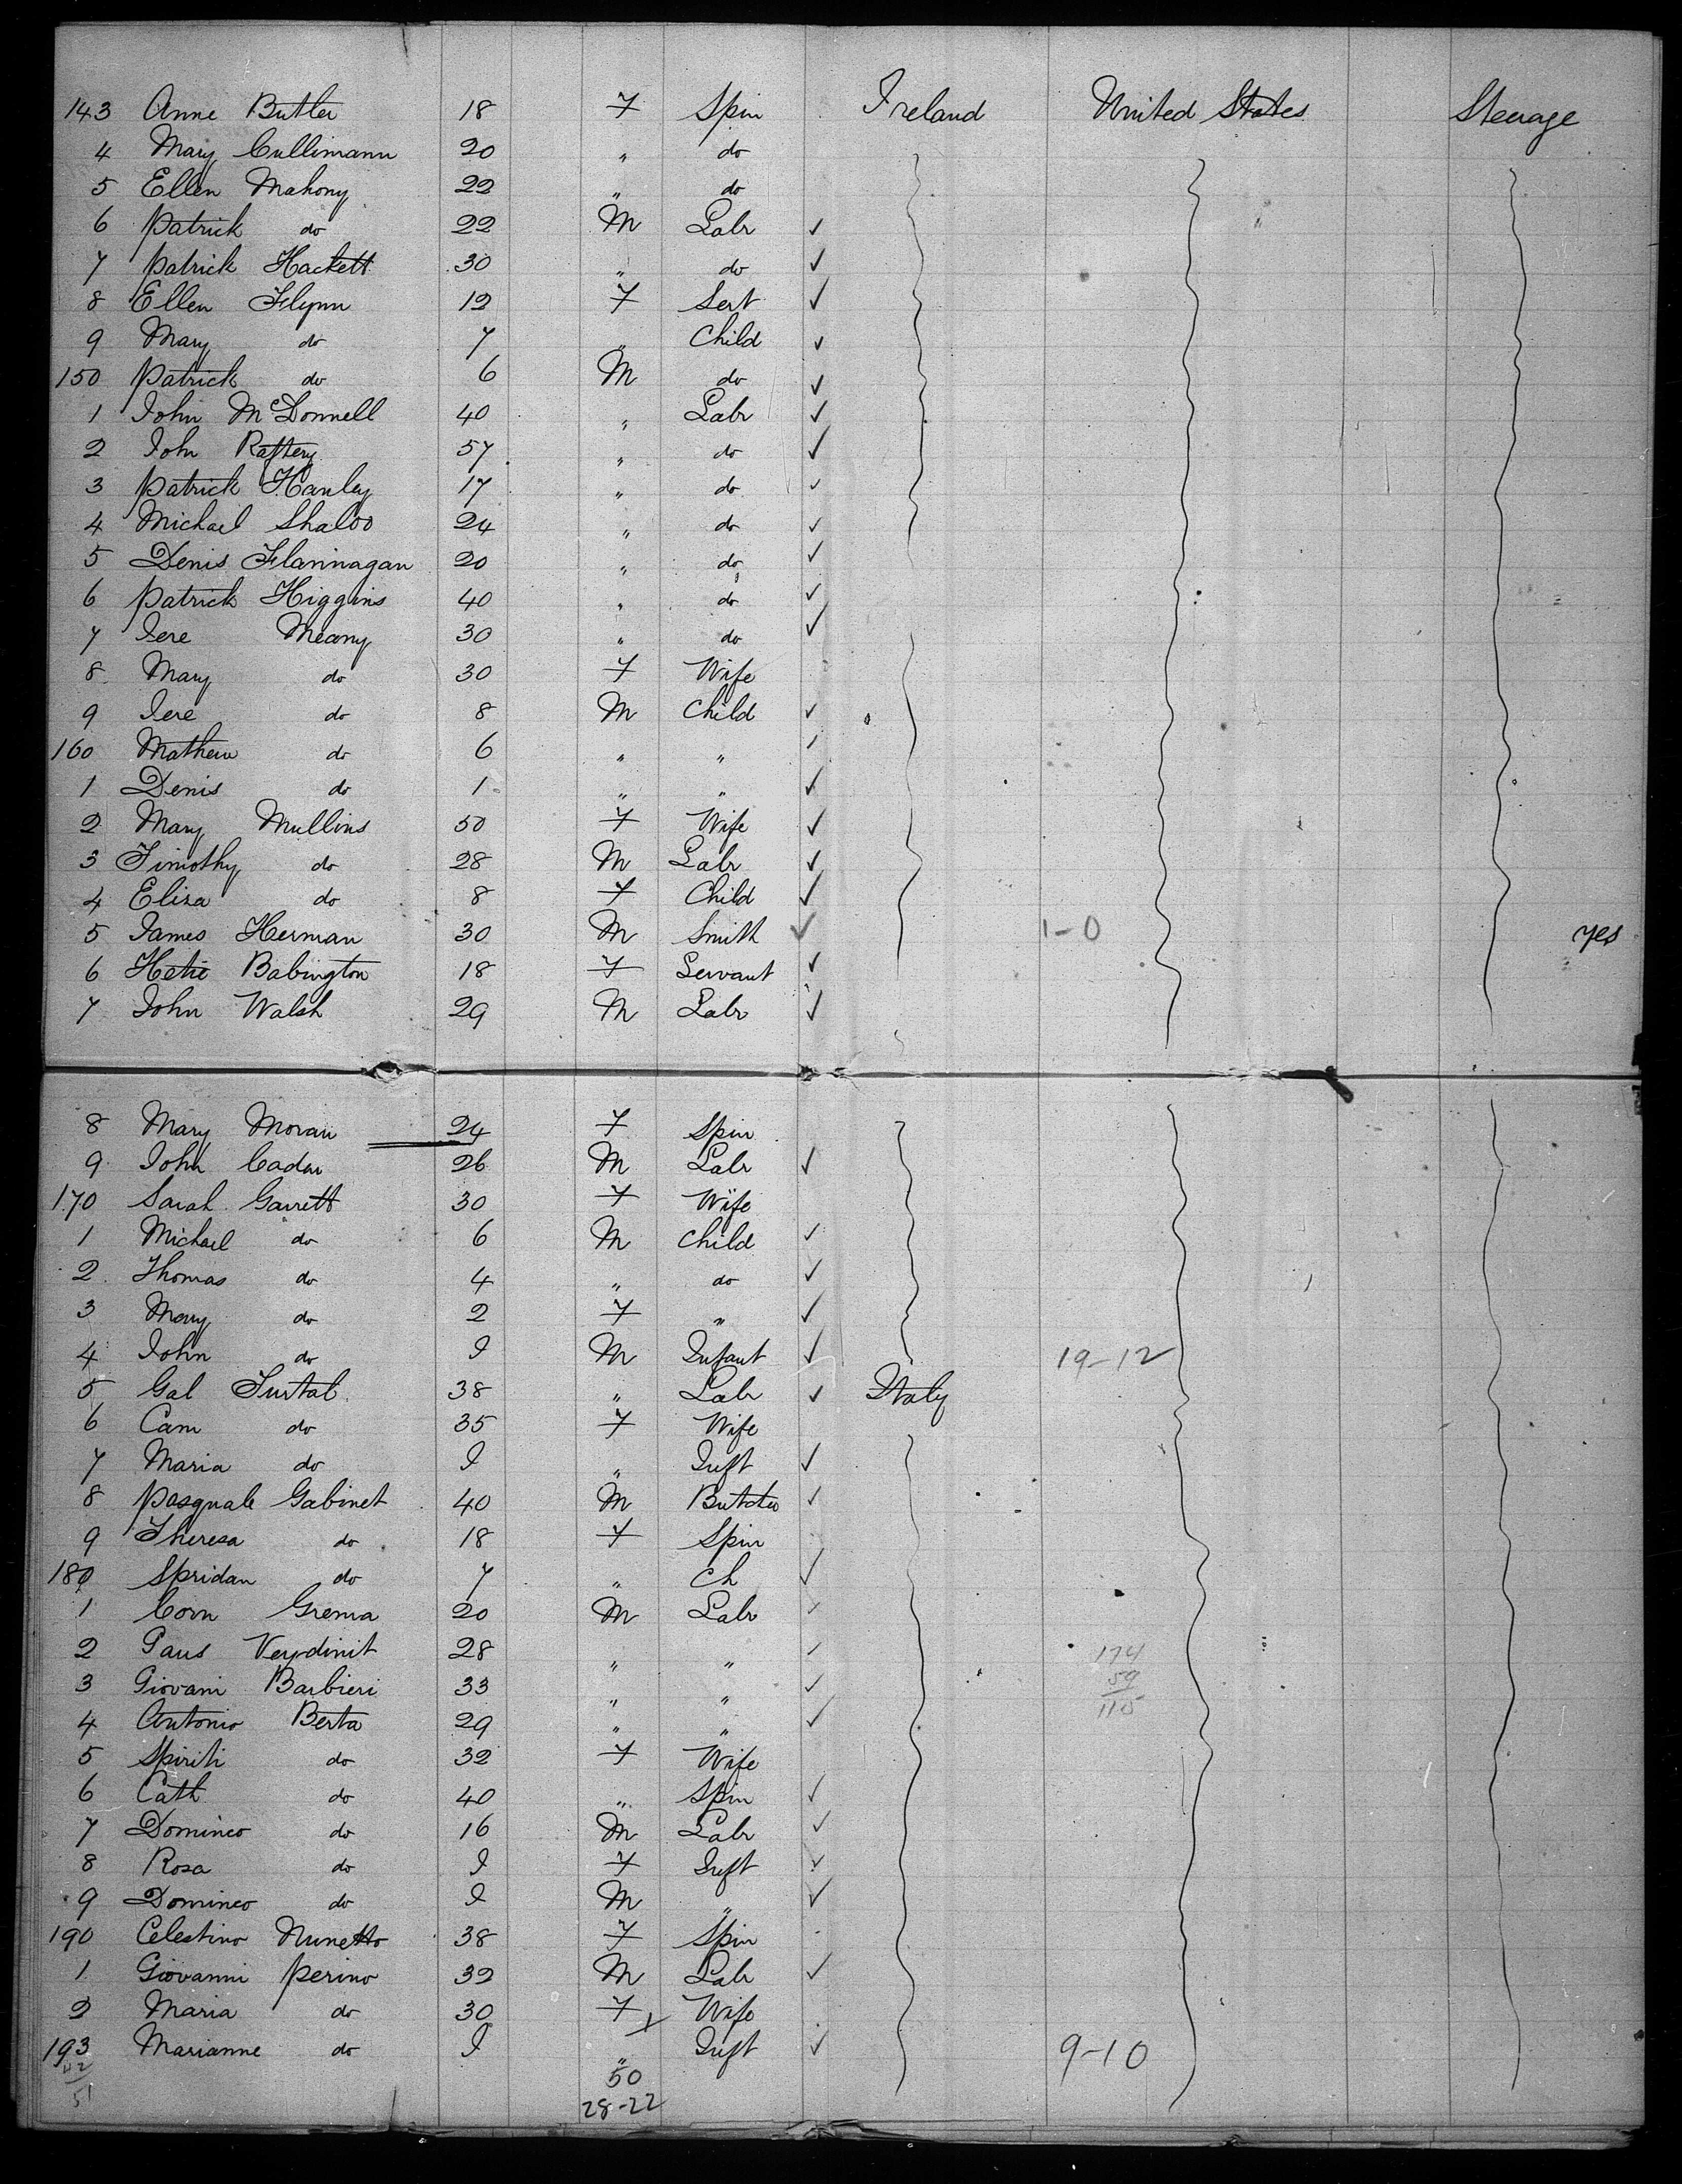 143 Anne Butler 18 F Spin Ireland United States Steerage
4 Mary Cullimann 20 " do
5 Ellen Mahony 22 " do
6 Patrick do 22 M Labr ✓
7 Patrick Hackett 30 " do ✓
8 Ellen Flynn 12 F Sert ✓
9 Mary do 7 " Child ✓
150 Patrick do 6 M do ✓
1 John McDonnell 40 " Labr ✓
2 John Raftery 57 " do ✓
3 Patrick Hanley 17 " do ✓
4 Michael Shaloo 24 " do ✓
5 Denis Flannagan 20 " do ✓
6 Patrick Higgins 40 " do ✓
7 Jere Meany 30 " do ✓
8 Mary do 30 F Wife
9 Jere do 8 M Child ✓
160 Mathew do 6 " " ✓
1 Denis do 1 " " ✓
2 Mary Mullins 50 F Wife ✓
3 Timothy do 28 M Labr ✓
4 Eliza do 8 F Child ✓
5 James Herman 30 M Smith ✓ 1-0 yes
6 Hetie Babington 18 F Servant ✓
7 John Walsh 29 M Labr ✓
8 Mary Moran 24 F Spin
9 John Caden 26 M Labr ✓
170 Sarah Garrett 30 F Wife
1 Michael do 6 M Child ✓
2 Thomas do 4 " do ✓
3 Mary do 2 F " ✓
4 John do I M Infant ✓ 19-12
5 Gal Surtal 38 " Labr ✓ Italy
6 Cam do 35 F Wife
7 Maria do I " Inft ✓
8 Pasquale Gabinet 40 M Butcher ✓
9 Theresa do 18 F Spin
180 Spridan do 7 " Ch ✓
1 Corn Grema 20 M Labr ✓
2 Paus Veydinit 28 " " ✓ 174
3 Giovani Barbieri 33 " " ✓ 59
4 Antonio Berta 29 " " ✓ 115
5 Spiriti do 32 F Wife
6 Cath do 40 " Spin ✓
7 Domineo do 16 M Labr ✓
8 Rosa do I F Inft ✓
9 Domineo do I M " ✓
190 Celestino Nunetto 38 F Spin
1 Giovanni Perino 32 M Labr ✓
2 Maria do 30 F x Wife
193 Marianne do I " Inft ✓ 9-10
142 50
51 28-22